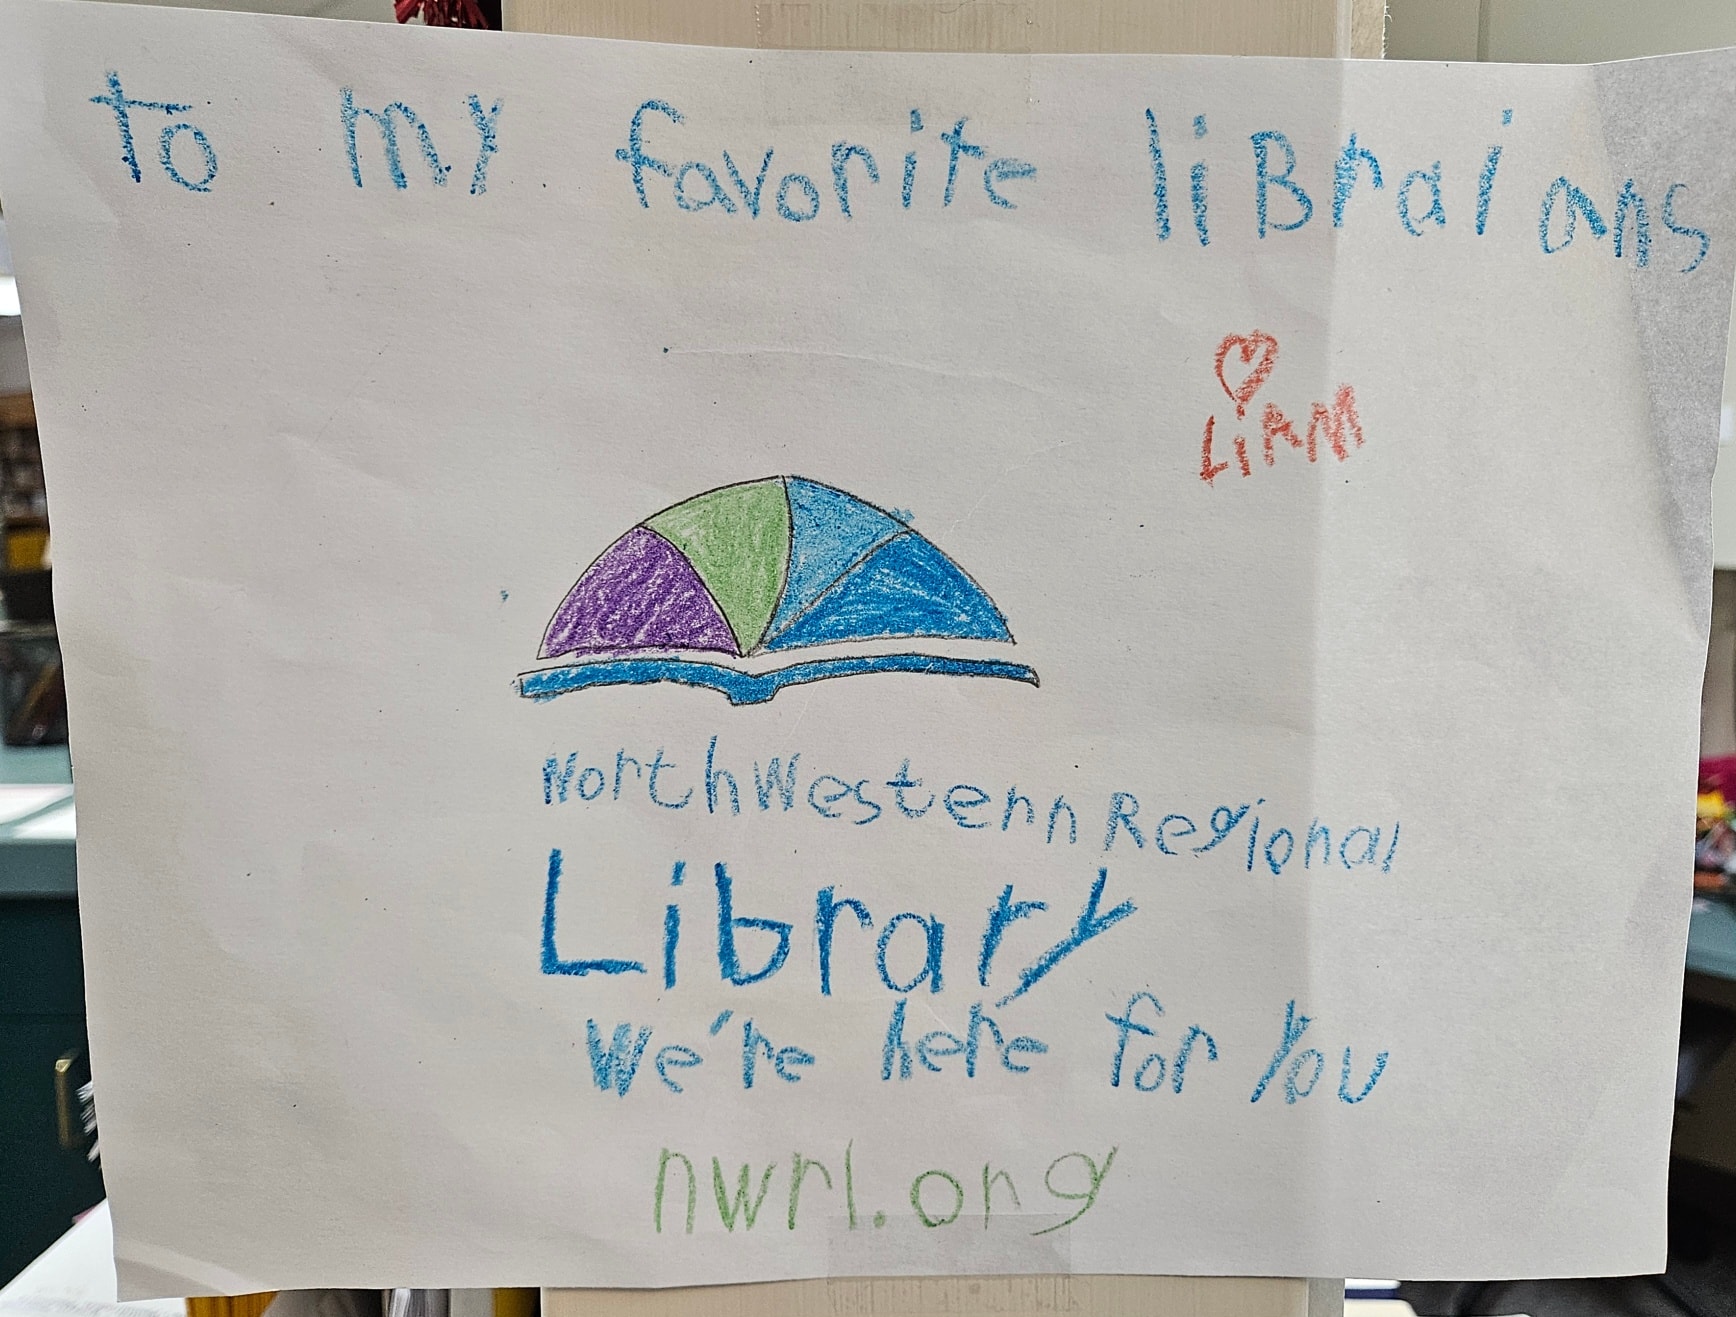 to my favorite liBraians
LiAM
NorthWestern Regional
Library
We're here for You
nwrl.org